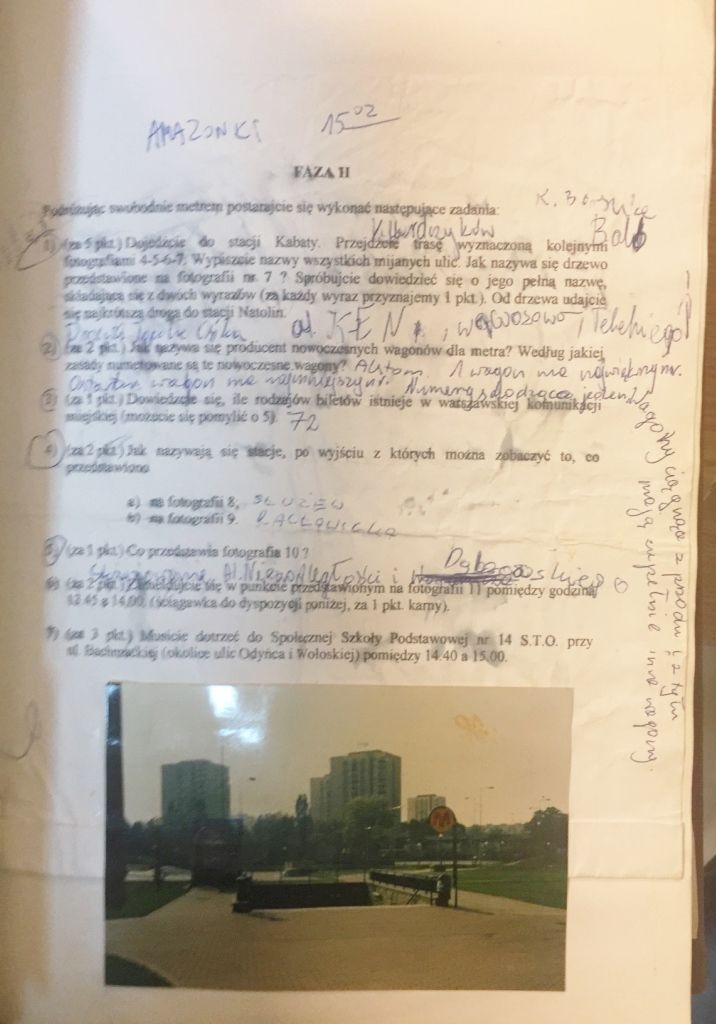 AMAZONKI 15 02
FAZA II
Podróżując swobodnie metrem postarajcie się wykonać następujące zadania:
1) (za 5 pkt.) Dojedźcie do stacji Kabaty. Przejdźcie trasę wyznaczoną kolejnymi
fotografiami 4-5-6-7. Wypiszcie nazwy wszystkich mijanych ulic. Jak nazywa się drzewo
przedstawione na fotografii nr 7 ? Spróbujcie dowiedzieć się o jego pełną nazwę,
składającą się z dwóch wyrazów (za każdy wyraz przyznajemy 1 pkt.). Od drzewa udajcie
się najkrótszą drogą do stacji Natolin.
al. KEN, wąwozowa, Telekiego
2) (za 2 pkt.) Jak nazywa się producent nowoczesnych wagonów dla metra? Według jakiej
zasady numerowane są te nowoczesne wagony? Alstom. 1 wagon ma największy nr.
Ostatni wagon ma najmniejszy nr.
3) (za 1 pkt.) Dowiedzcie się, ile rodzajów biletów istnieje w warszawskiej komunikacji
miejskiej (możecie się pomylić o 5). 72
4) (za 2 pkt.) Jak nazywają się stacje, po wyjściu z których można zobaczyć to, co
przedstawiono
a) na fotografii 8, SŁUŻEW
b) na fotografii 9. RACŁAWICKA
5) (za 1 pkt.) Co przedstawia fotografia 10 ?
Skrzyżowanie Al. Niepodległości i Dąbrowskiego
6) (za 2 pkt.) Zameldujcie się w punkcie przedstawionym na fotografii 11 pomiędzy godziną
13.45 a 14.00. (ściągawka do dyspozycji poniżej, za 1 pkt. karny).
7) (za 3 pkt.) Musicie dotrzeć do Społecznej Szkoły Podstawowej nr 14 S.T.O. przy
ul. (okolice ulic Odyńca i Wołoskiej) pomiędzy 14.40 a 15.00.
Wagony ciągnące z przodu i z tyłu
mają zupełnie inne wagony.
M